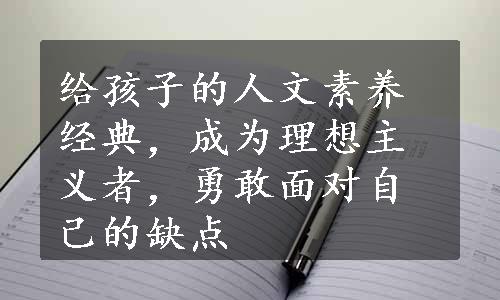 给孩子的人文素养
经典，成为理想主
义者，勇敢面对自
己的缺点